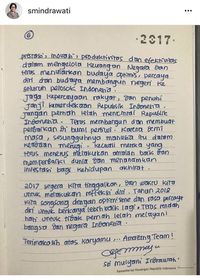 smindrawati
6
2017
prestasi, inovasi, produktivitas dan efektivitas
dalam mengelola Keuangan Negara dan
terus menularkan budaya optimis, percaya
diri dan budaya membangun negeri ke
seluruh pelosok Indonesia.
Jaga kepercayaan rakyat, dan penuhi
janji kemerdekaan Republik Indonesia.
Jangan pernah lelah mencintai Republik
Indonesia. Terus membangun dan membuat
perbaikan di bumi pertiwi. Karena demi
masa, sesungguhnya manusia itu dalam
keadaan merugi - kecuali mereka yang
terus menerus melakukan amalan baik dan
memperbaiki dunia dan menanamkan
investasi bagi kehidupan akhirat.
2017 segera kita tinggalkan, dan waktu kita
untuk melakukan refleksi diri. Tahun 2018
kita songsong dengan optimisme dan rasa percaya
diri untuk bekerja lebih baik lagi. Teras
hati untuk tidak pernah lelah melayani
bangsa dan negara Indonesia
Terimakasih atas kerjamu... Amazing Team!
Sri Mulyani Indrawati.
Kementerian Keuangan Republik Indonesia